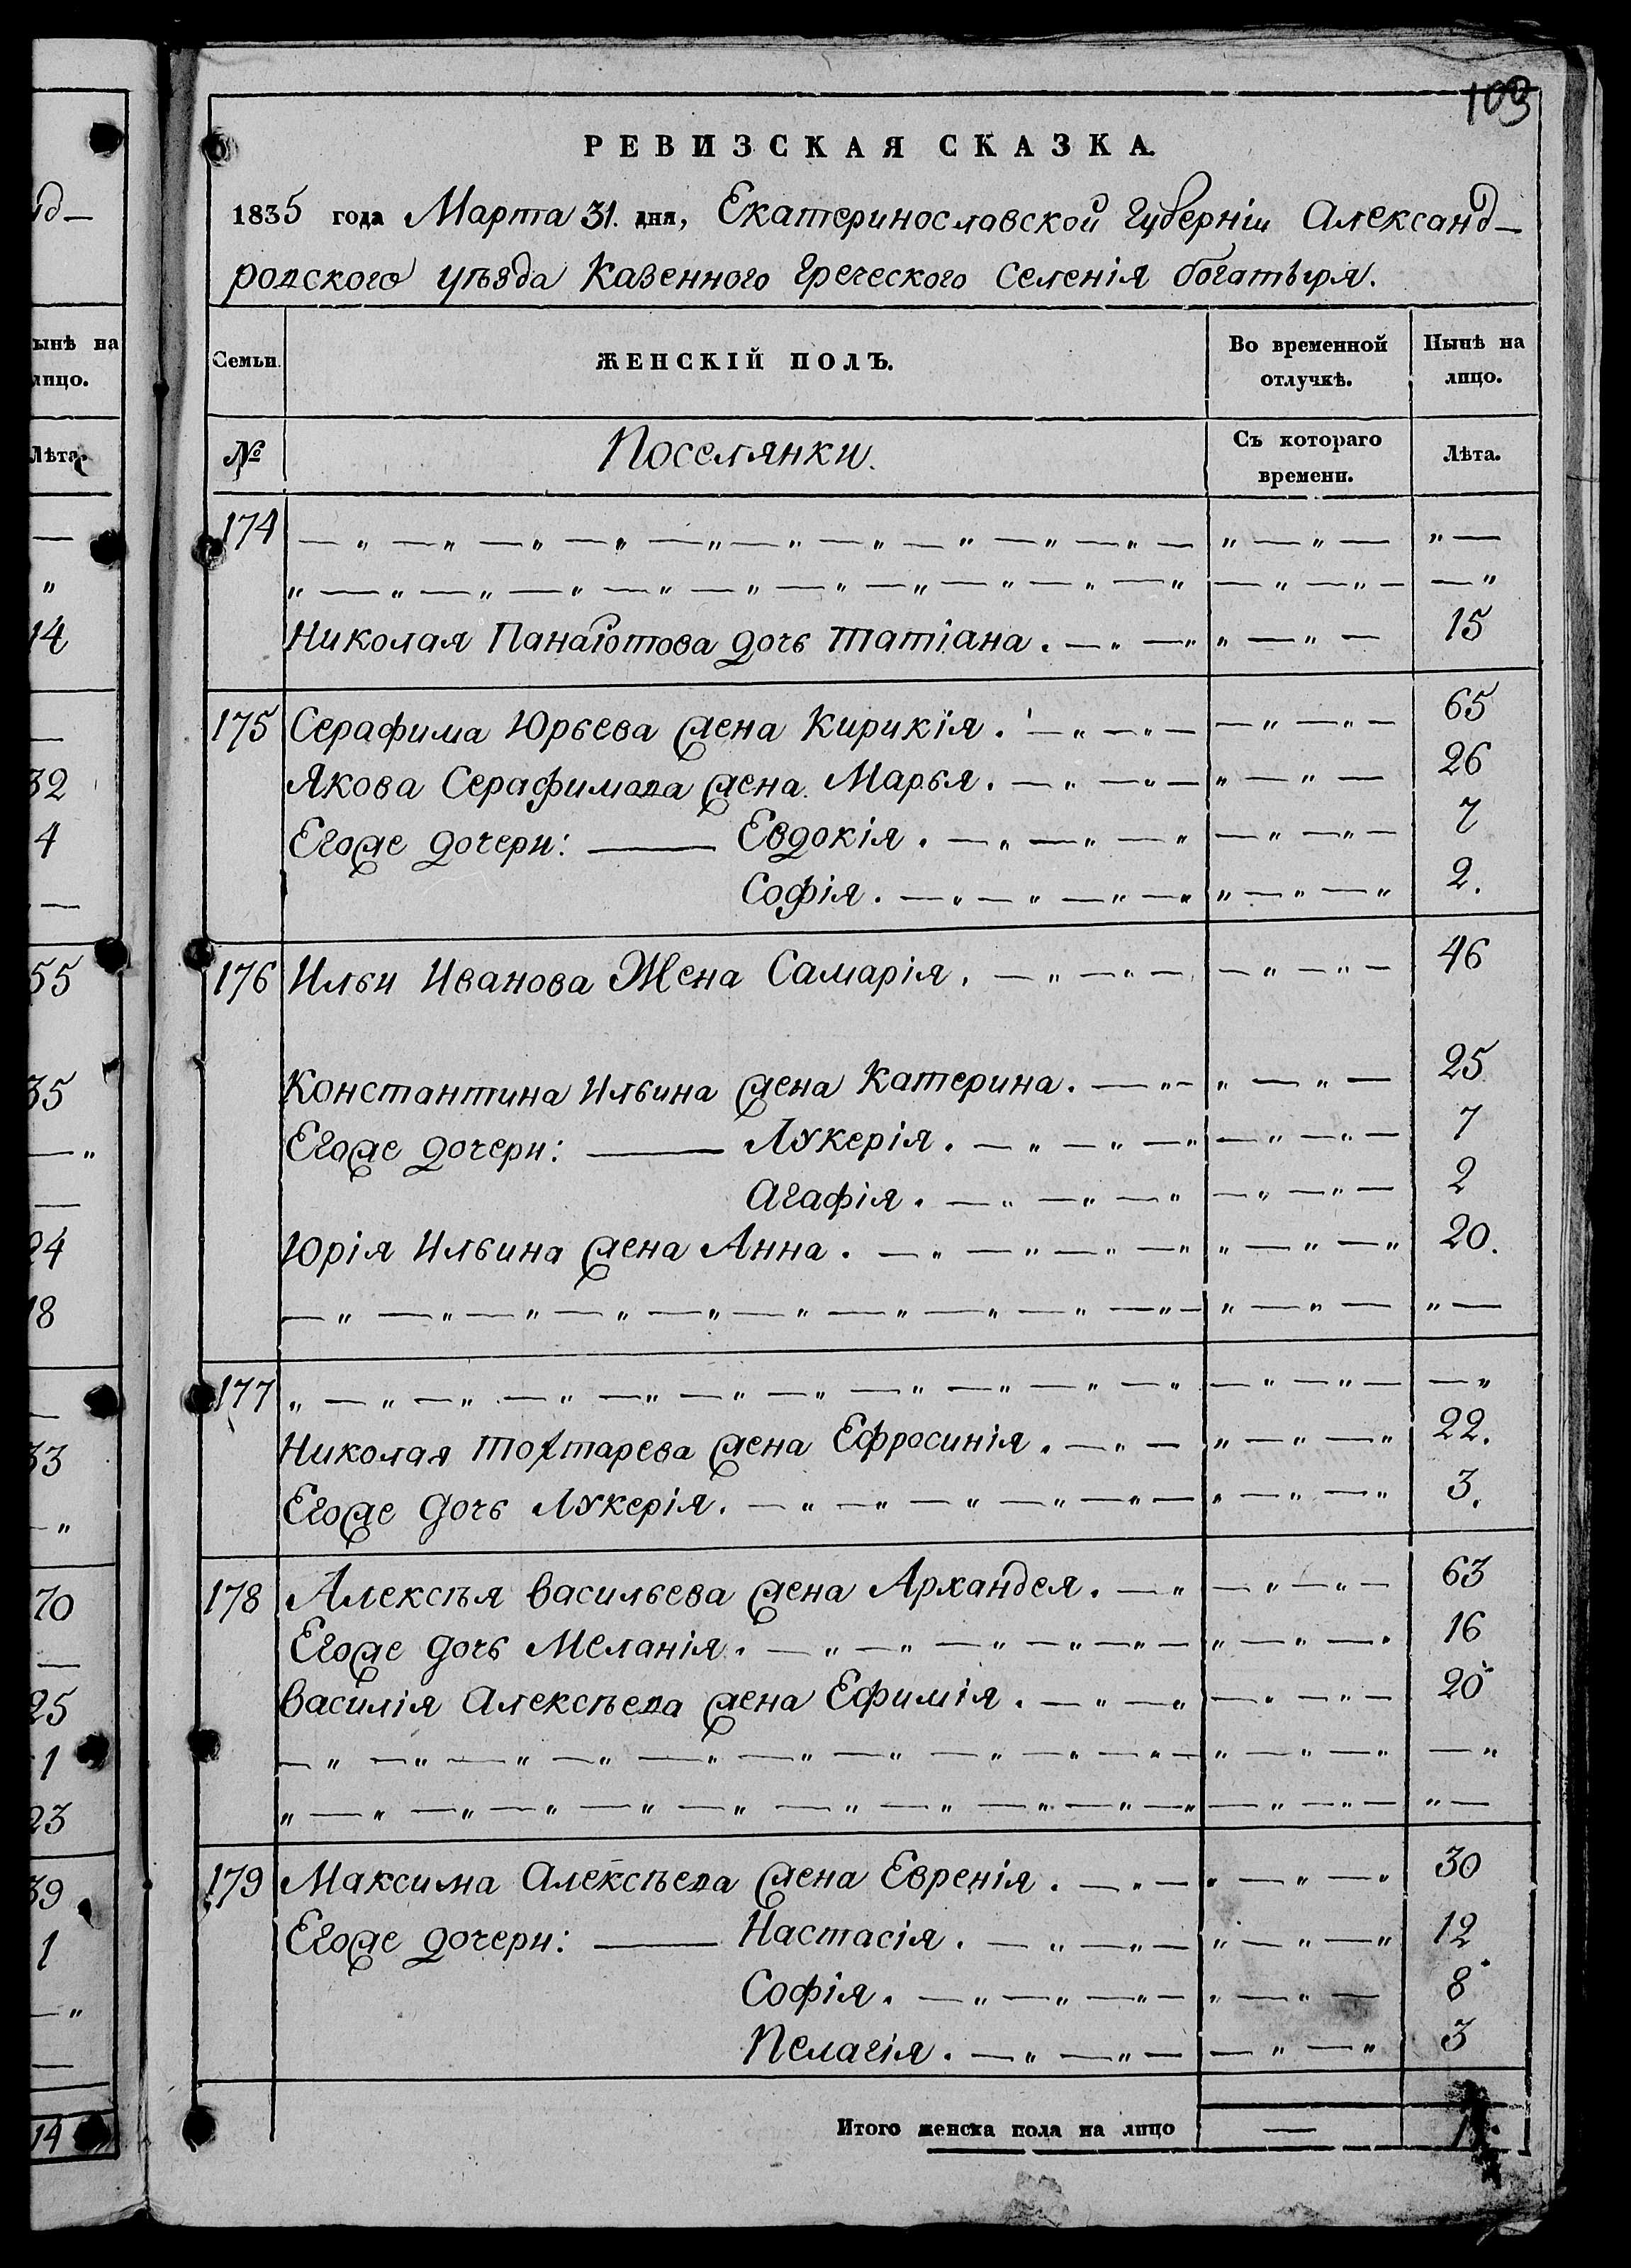 ид—
ынѣ на
лицо.
Лѣта.
—
"
14
—
32
4
—
55
35
— "
—
24
18
—
33
— "
70
—
25
1
23
39
1
— "
—
14
103
РЕВИЗСКАЯ СКАЗКА.
1835 года Марта 31. дня, Екатеринославской Губерніи Александ—
ровскаго уѣзда Казенного Греческого Селенія Богатыря.
Семьи. ЖЕНСКІЙ ПОЛЪ. Во временной отлучкѣ. Нынѣ на лицо.
№ Поселянки. Съ котораго времени. Лѣта.
174 — " — " — " — " — " — " — " — " — " — " — " — " — " —
" — " — " — " — " — " — " — " — " — " — " — " — " — — "
Николая Панаіотова дочь Татіана. — " — " " — " — 15
175 Серафима Юрьева жена Кирикія. — " — " — — " — " — 65
Якова Серафимова жена Марья. — " — " — " — " — 26
Егоже дочери: — Евдокія. — " — " — " — " — " — 7
Софія. — " — " — " — " " — " — " 2.
176 Ильи Иванова Жена Самарія. — " — " — — " — " — 46
Константина Ильина жена Катерина. — " — " — " — 25
Егоже дочери: — Лукерія. — " — " — " — " — " — 7
Агафія. — " — " — " — " — " — 2
Юрія Ильина жена Анна. — " — " — " — " " — " — " 20.
— " — " — " — " — " — " — " — " — " — " — " — " — " —
177 " — " — " — " — " — " — " — " — " — " — " — " — " — — "
Николая Тохтарева жена Ефросинія. — " — " — " — " 22.
Егоже дочь Лукерія. — " — " — " — " — " — " — " — " 3.
178 Алексѣя Васильева жена Архандея. — " — " — " — 63
Егоже дочь Меланія. — " — " — " — " — " — " — " — " 16
Василія Алексѣева жена Ефимія. — " — " — " — " — 20
— " — " — " — " — " — " — " — " — " — " — " — " — " — "
" — " — " — " — " — " — " — " — " — " — " — " — " — " —
179 Максима Алексѣева жена Евренія. — " — " — " — " 30
Егоже дочери: — Настасія. — " — " — " — " — " 12
Софія. — " — " — " — " — " — 8
Пелагія. — " — " — — " — " 3
Итого женска пола на лицо —